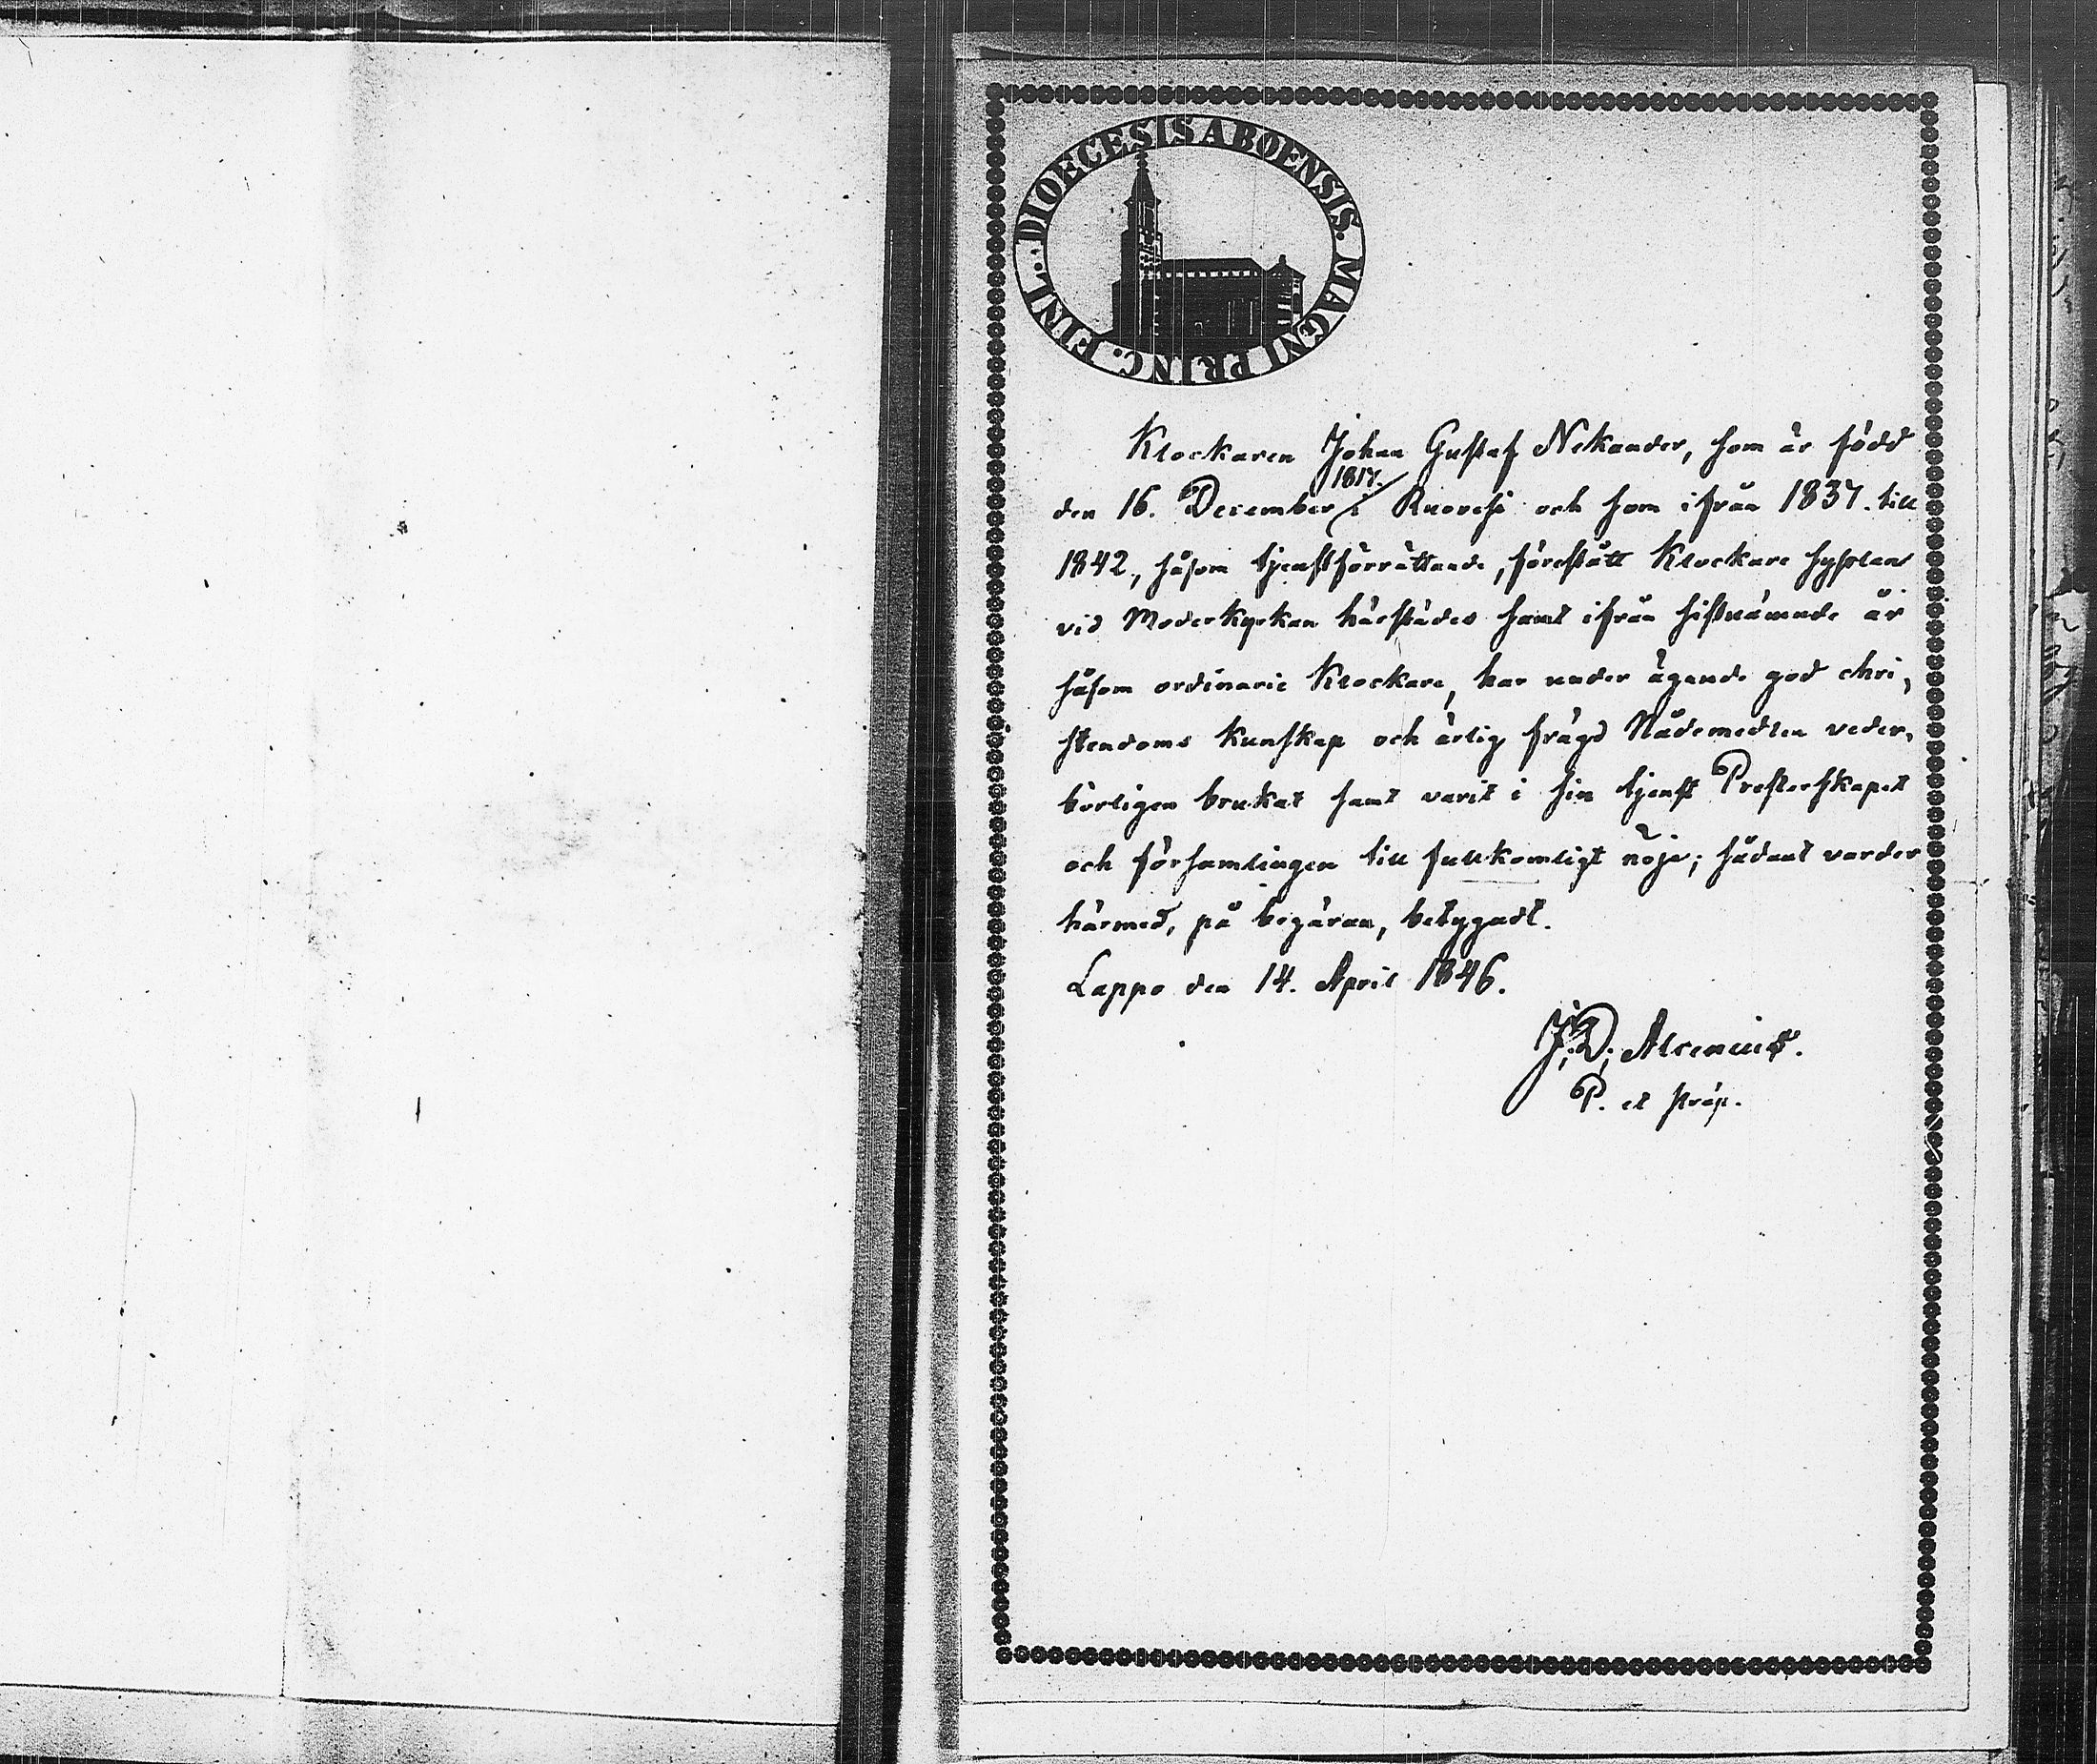 DIOECESIS ABOENSIS. MAGNI PRINC. FINL.
Klockaren Johan Gustaf Nekander, som är född
1817.
den 16. December i Ruovesi och som ifrån 1837. till
1842, såsom tjenstförrättande, förestått Klockare sysslan
vid Moderkyrkan härstädes samt ifrån sistnämnde år
såsom ordinarie Klockare, har under ägande god chri,
stendoms kunskap och ärlig frägd Nådemedlen veder,
börligen brukat samt varit i sin tjenst Presterskapet
och församlingen till fullkomligt nöje; sådant varder
härmed, på begäran, betygadt.
Lappo den 14. April 1846.
J. D. Alcenius.
P. et präp.